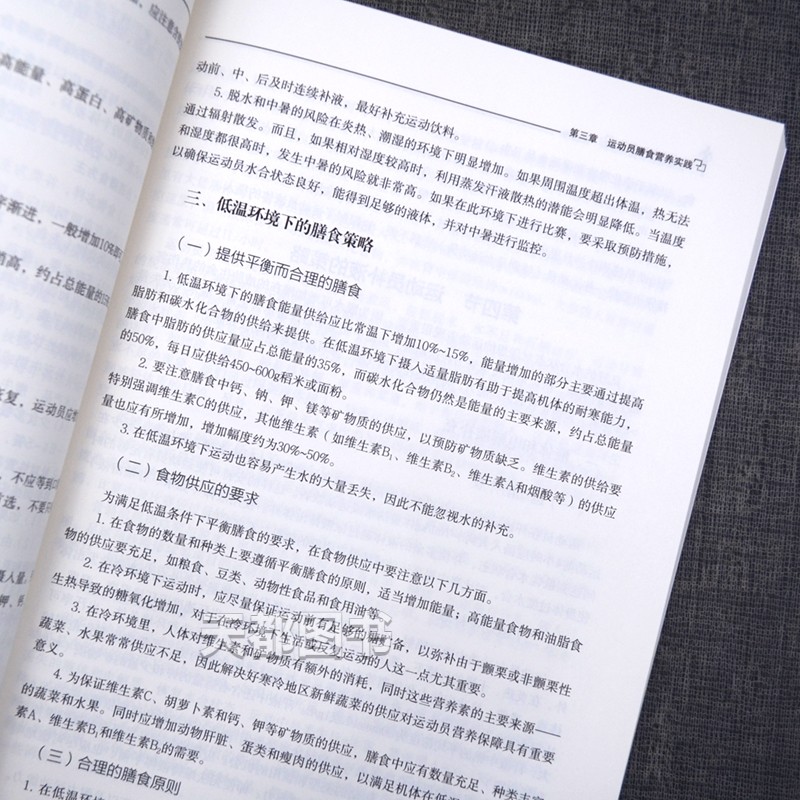 应注意
高能量、高蛋白、高矿物质
年渐进，一般增加10%
消高，约占总能量的
恢复，运动员应
不应等到
首选，不要
摄入量
第三章 运动员膳食营养实践
动前、中、后及时连续补液，最好补充运动饮料。
5. 脱水和中暑的风险在炎热、潮湿的环境下明显增加。如果周围温度超出体温，热无法
通过辐射散发。而且，如果相对湿度较高时，利用蒸发汗液散热的潜能会明显降低。当温度
和湿度都很高时，发生中暑的风险就非常高。如果在此环境下进行比赛，要采取预防措施，
以确保运动员水合状态良好，能得到足够的液体，并对中暑进行监控。
三、低温环境下的膳食策略
（一）提供平衡而合理的膳食
1. 低温环境下的膳食能量供给应比常温下增加10%~15%，能量增加的部分主要通过提高
脂肪和碳水化合物的供给来提供。在低温环境下摄入适量脂肪有助于提高机体的耐寒能力，
膳食中脂肪的供应量应占总能量的35%，而碳水化合物仍然是能量的主要来源，约占总能量
的50%，每日应供给450~600g稻米或面粉。
2. 要注意膳食中钙、钠、钾、镁等矿物质的供应，以预防矿物质缺乏。维生素的供给要
特别强调维生素C的供应，其他维生素（如维生素B₁、维生素B₂、维生素A和烟酸等）的供应
量也应有所增加，增加幅度约为30%~50%。
3. 在低温环境下运动也容易产生水的大量丢失，因此不能忽视水的补充。
（二）食物供应的要求
为满足低温条件下平衡膳食的要求，在食物供应中要注意以下几方面。
1. 在食物的数量和种类上要遵循平衡膳食的原则，适当增加能量；高能量食物和油脂食
物的供应要充足，如粮食、豆类、动物性食品和食用油等。
2. 在冷环境下运动时，应尽量保证运动员有足够的糖储备，以弥补由于颤栗或非颤栗性
生热导致的糖氧化增加，对于在冷环境下生活或运动的人这一点尤其重要。
3. 在冷环境里，人体对维生素和矿物质有额外的消耗，同时这些营养素的主要来源——
蔬菜、水果常常供应不足，因此解决好寒冷地区新鲜蔬菜的供应对运动员营养保障具有重要
意义。
4. 为保证维生素C、胡萝卜素和钙、钾等矿物质的供应，膳食中应有数量充足、种类丰富
的蔬菜和水果。同时应增加动物肝脏、蛋类和瘦肉的供应，以满足机体在低温
素A、维生素B₁和维生素B₂的需要。
（三）合理的膳食原则
1. 在低温环境
天都图书